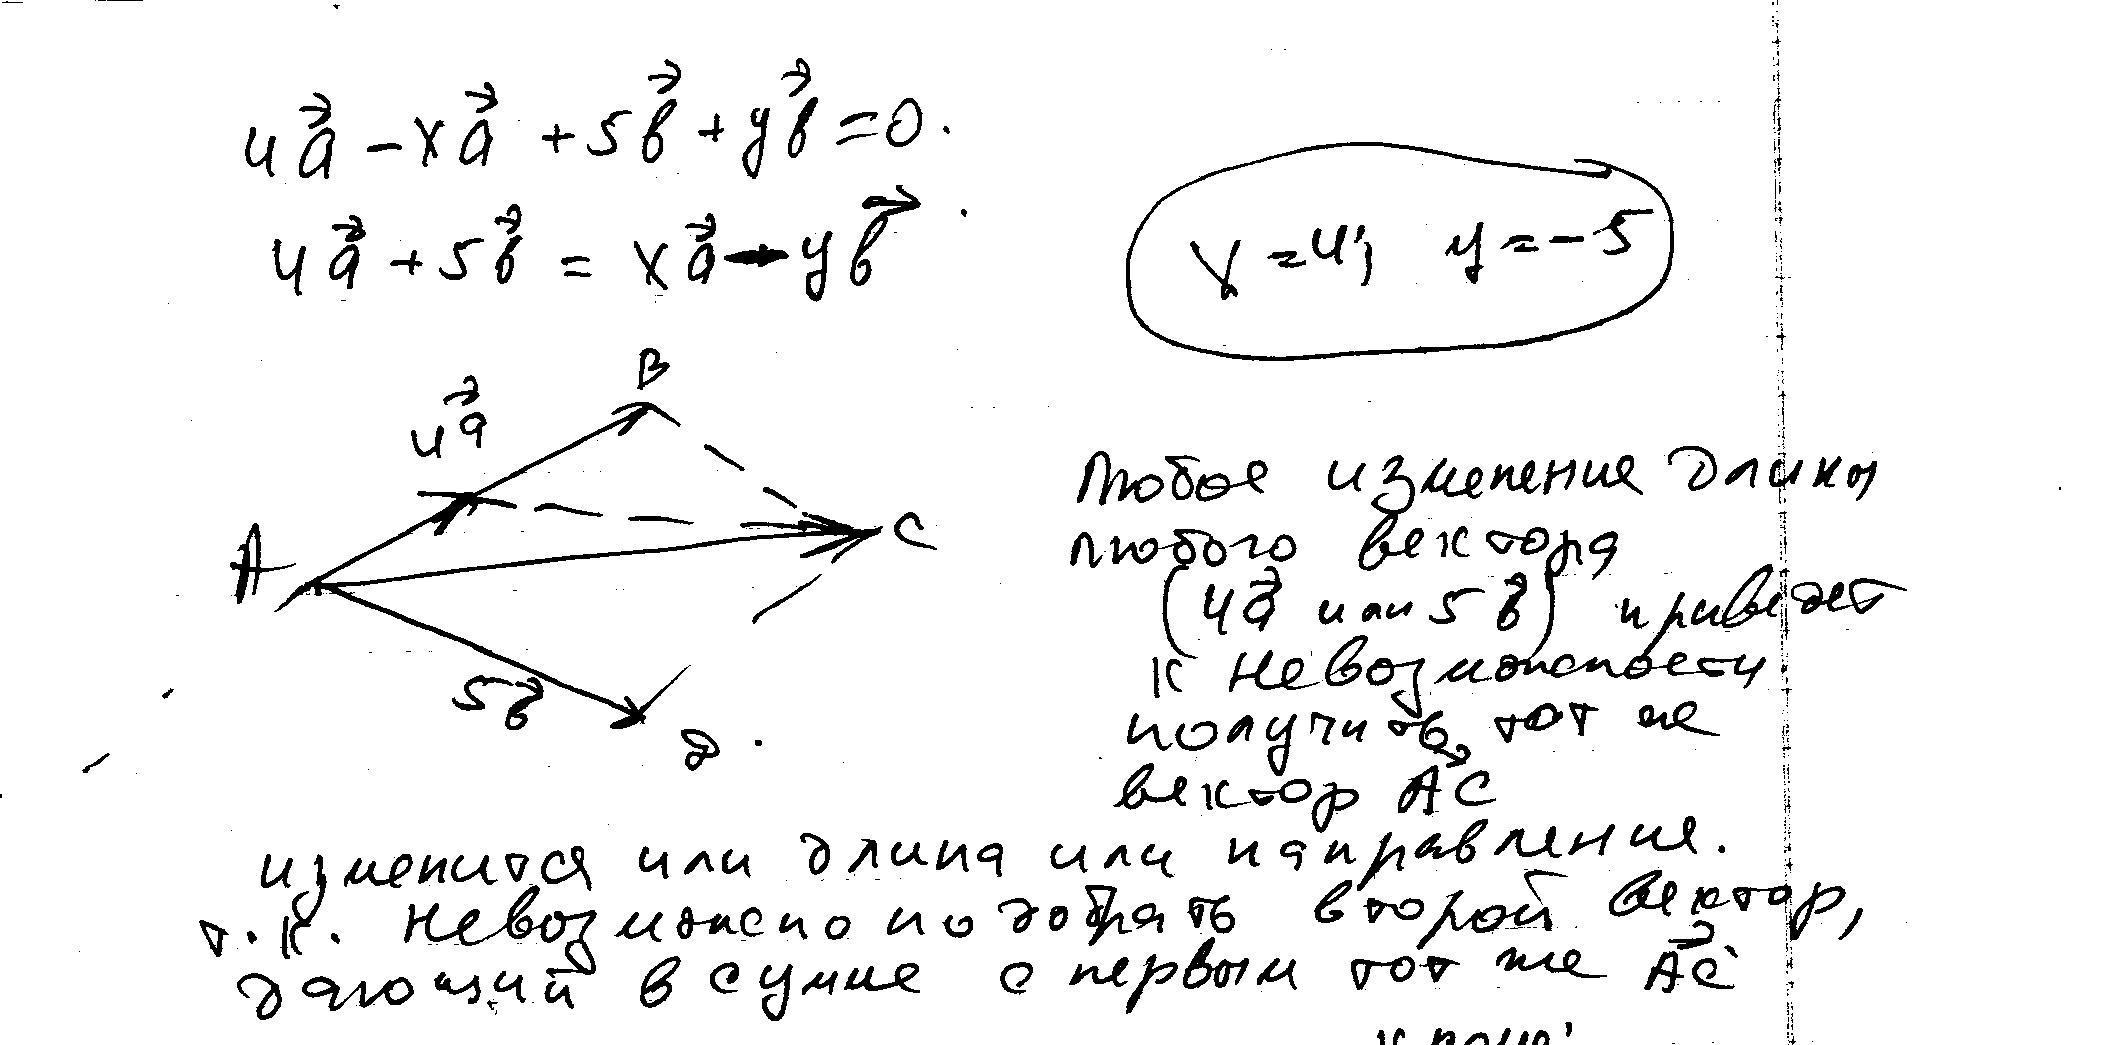 4a⃗ - xa⃗ + 5b⃗ + yb⃗ = 0.
4a⃗ + 5b⃗ = xa⃗ - yb⃗
x = 4; y = -5
B
4a⃗
A
C
5b⃗
D
Любое изменение длины
любого вектора
(4a⃗ или 5b⃗) приведет
к невозможности
получить тот же
вектор AC⃗
изменится или длина или направление.
т.к. невозможно подобрать второй вектор,
дающий в сумме с первым тот же AC⃗